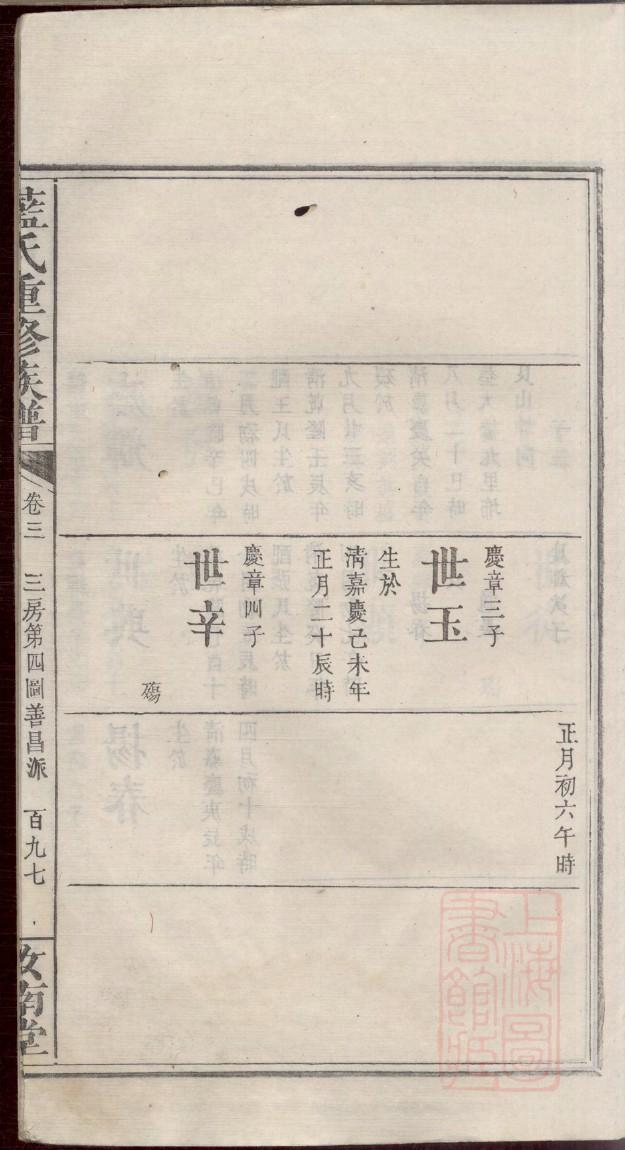 慶章三子
世玉
生於
淸嘉慶己未年
正月二十辰時
慶章四子
世辛
殤
正月初六午時
藍氏重修族譜
卷三
三房第四圖善昌派
百九七
汝南堂
上海圖
書館藏